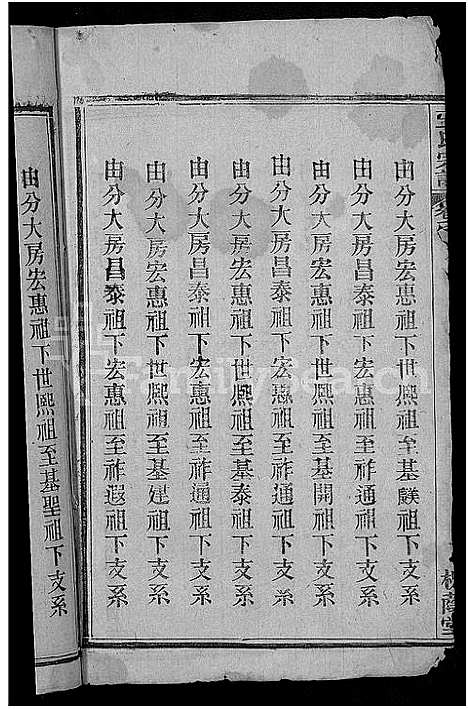 由分大房宏惠祖下世熈祖至基鎂祖下支系
由分大房昌泰祖下宏惠祖至祚通祖下支系
由分大房宏惠祖下世熈祖至基開祖下支系
由分大房昌泰祖下宏惠祖至祚通祖下支系
由分大房宏惠祖下世熈祖至基泰祖下支系
由分大房昌泰祖下宏惠祖至祚通祖下支系
由分大房宏惠祖下世熈祖至基建祖下支系
由分大房昌泰祖下宏惠祖至祚遐祖下支系
由分大房宏惠祖下世熈祖至基聖祖下支系
FamilySearch